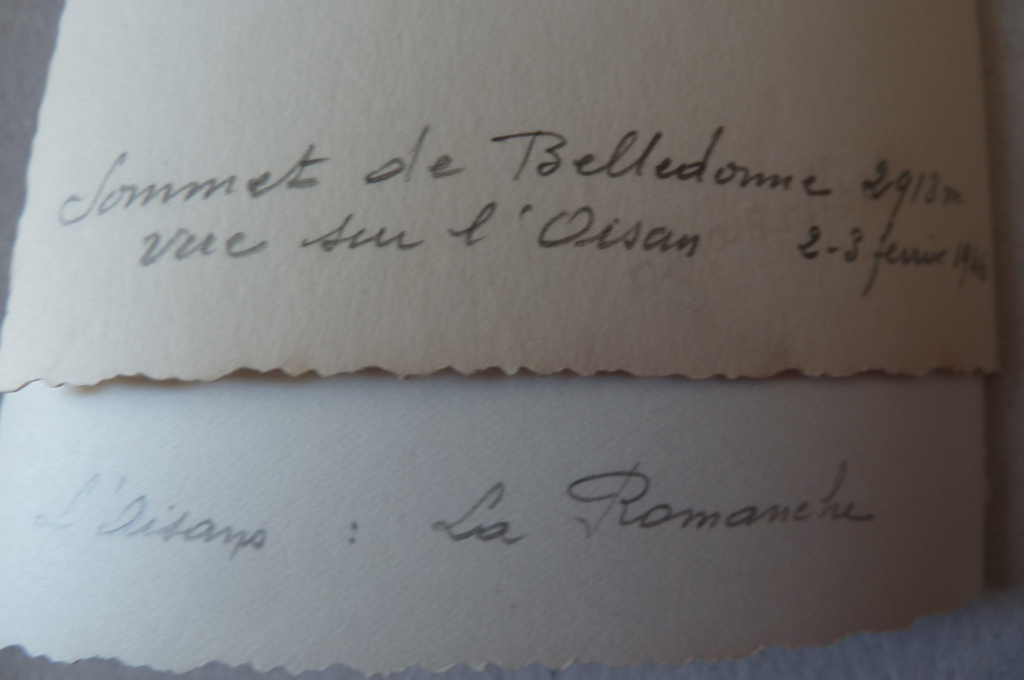 Sommet de Belledonne 2913m
vue sur l'Oisan 2-3 fevrier
L'Oisans : La Romanche